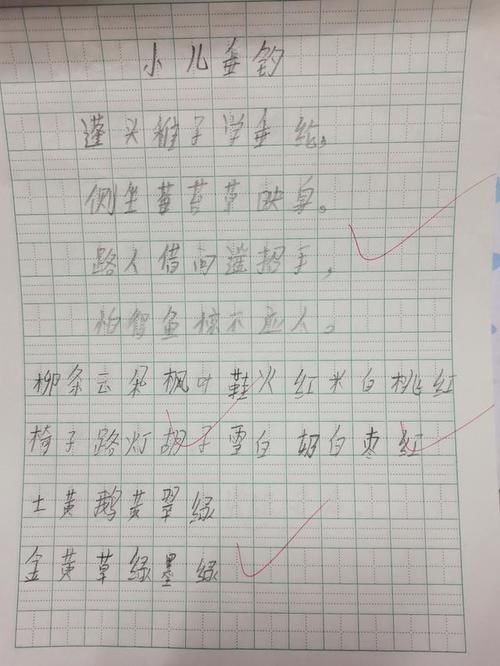 小儿垂钓
蓬头稚子学垂纶,
侧坐莓苔草映身。
路人借问遥招手,
怕得鱼惊不应人。
柳条云朵枫叶鞋火红米白桃红
椅子路灯胡子雪白奶白枣红
土黄鹅黄翠绿
金黄草绿墨绿